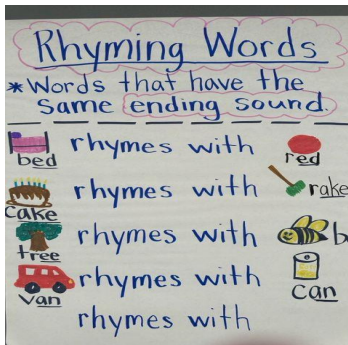 Rhyming Words
*Words that have the
same ending sound.
bed rhymes with red
cake rhymes with rake
tree rhymes with b
van rhymes with can
rhymes with